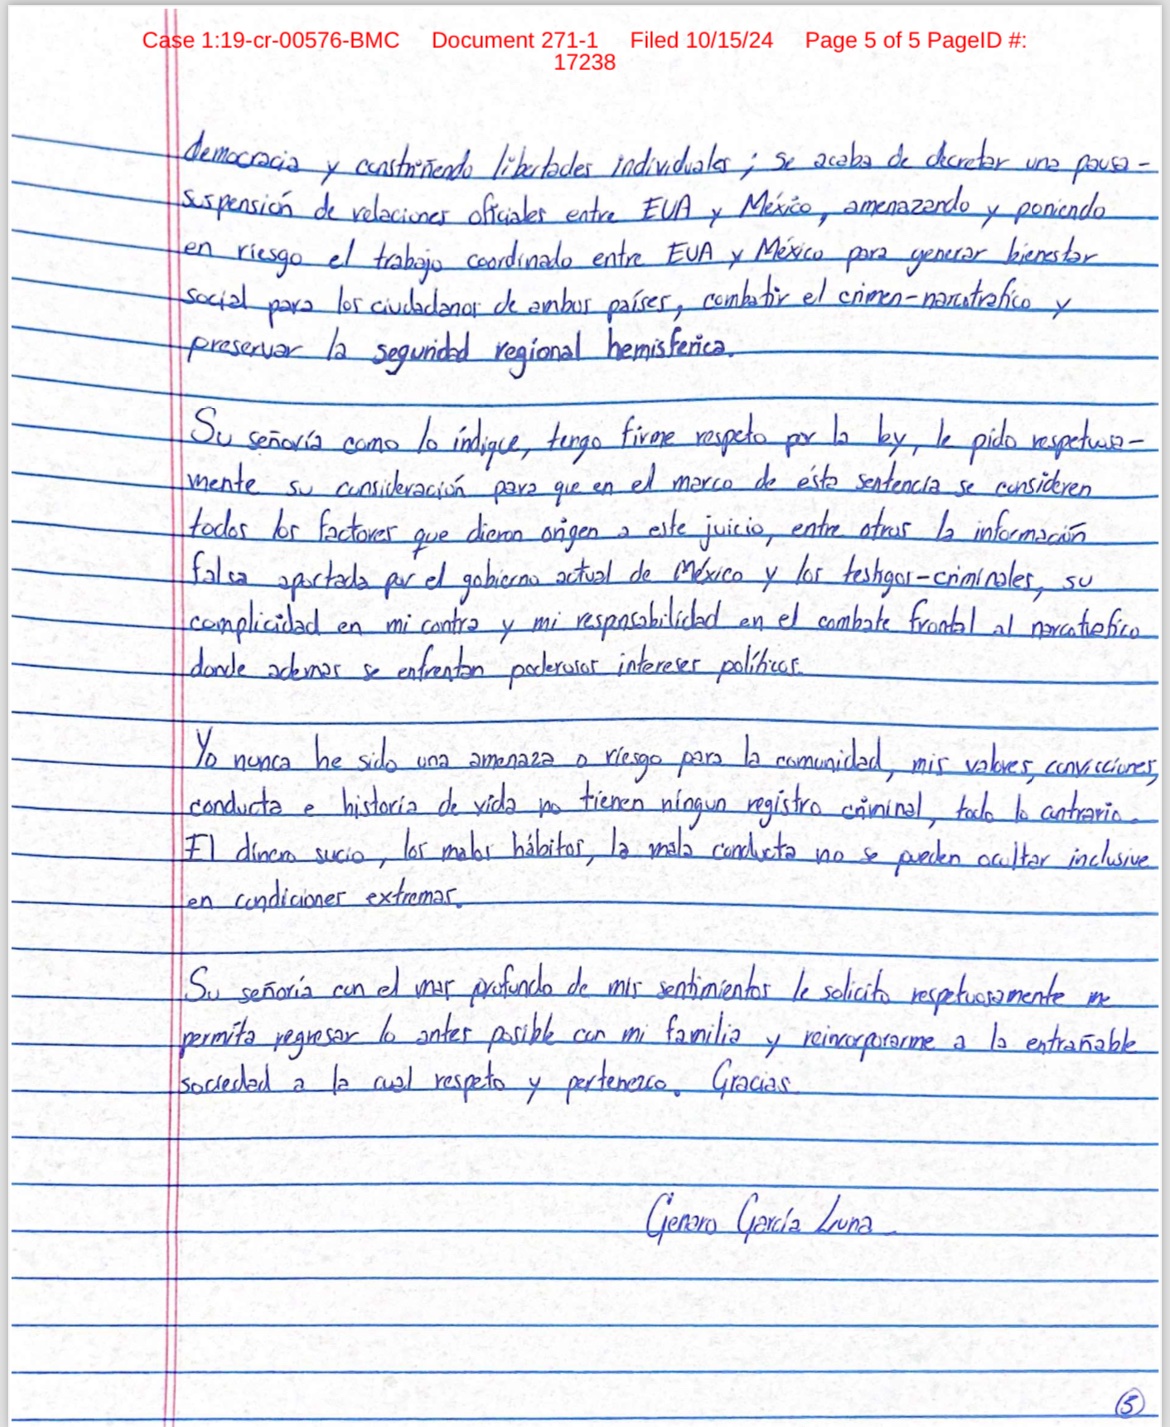 Case 1:19-cr-00576-BMC Document 271-1 Filed 10/15/24 Page 5 of 5 PageID #:
17238
democracia y constriñendo libertades individuales; se acaba de decretar una pausa-
suspensión de relaciones oficiales entre EUA y México, amenazando y poniendo
en riesgo el trabajo coordinado entre EUA y México para generar bienestar
social para los ciudadanos de ambos países, combatir el crimen-narcotrafico y
preservar la seguridad regional hemisferica.
Su señoría como lo indique, tengo firme respeto por la ley, le pido respetuosa-
mente su consideración para que en el marco de ésta sentencia se consideren
todos los factores que dieron origen a este juicio, entre otros la información
falsa aportada por el gobierno actual de México y los testigos-criminales, su
complicidad en mi contra y mi responsabilidad en el combate frontal al narcotrafico
donde ademas se enfrentan poderosos intereses políticos.
Yo nunca he sido una amenaza o riesgo para la comunidad, mis valores, convicciones,
conducta e historia de vida no tienen ningun registro criminal, todo lo contrario.
El dinero sucio, los malos hábitos, la mala conducta no se pueden ocultar inclusive
en condiciones extremas.
Su señoría con el mas profundo de mis sentimientos le solicito respetuosamente me
permita regresar lo antes posible con mi familia y reincorporarme a la entrañable
sociedad a la cual respeto y pertenezco. Gracias
Genaro García Luna
5